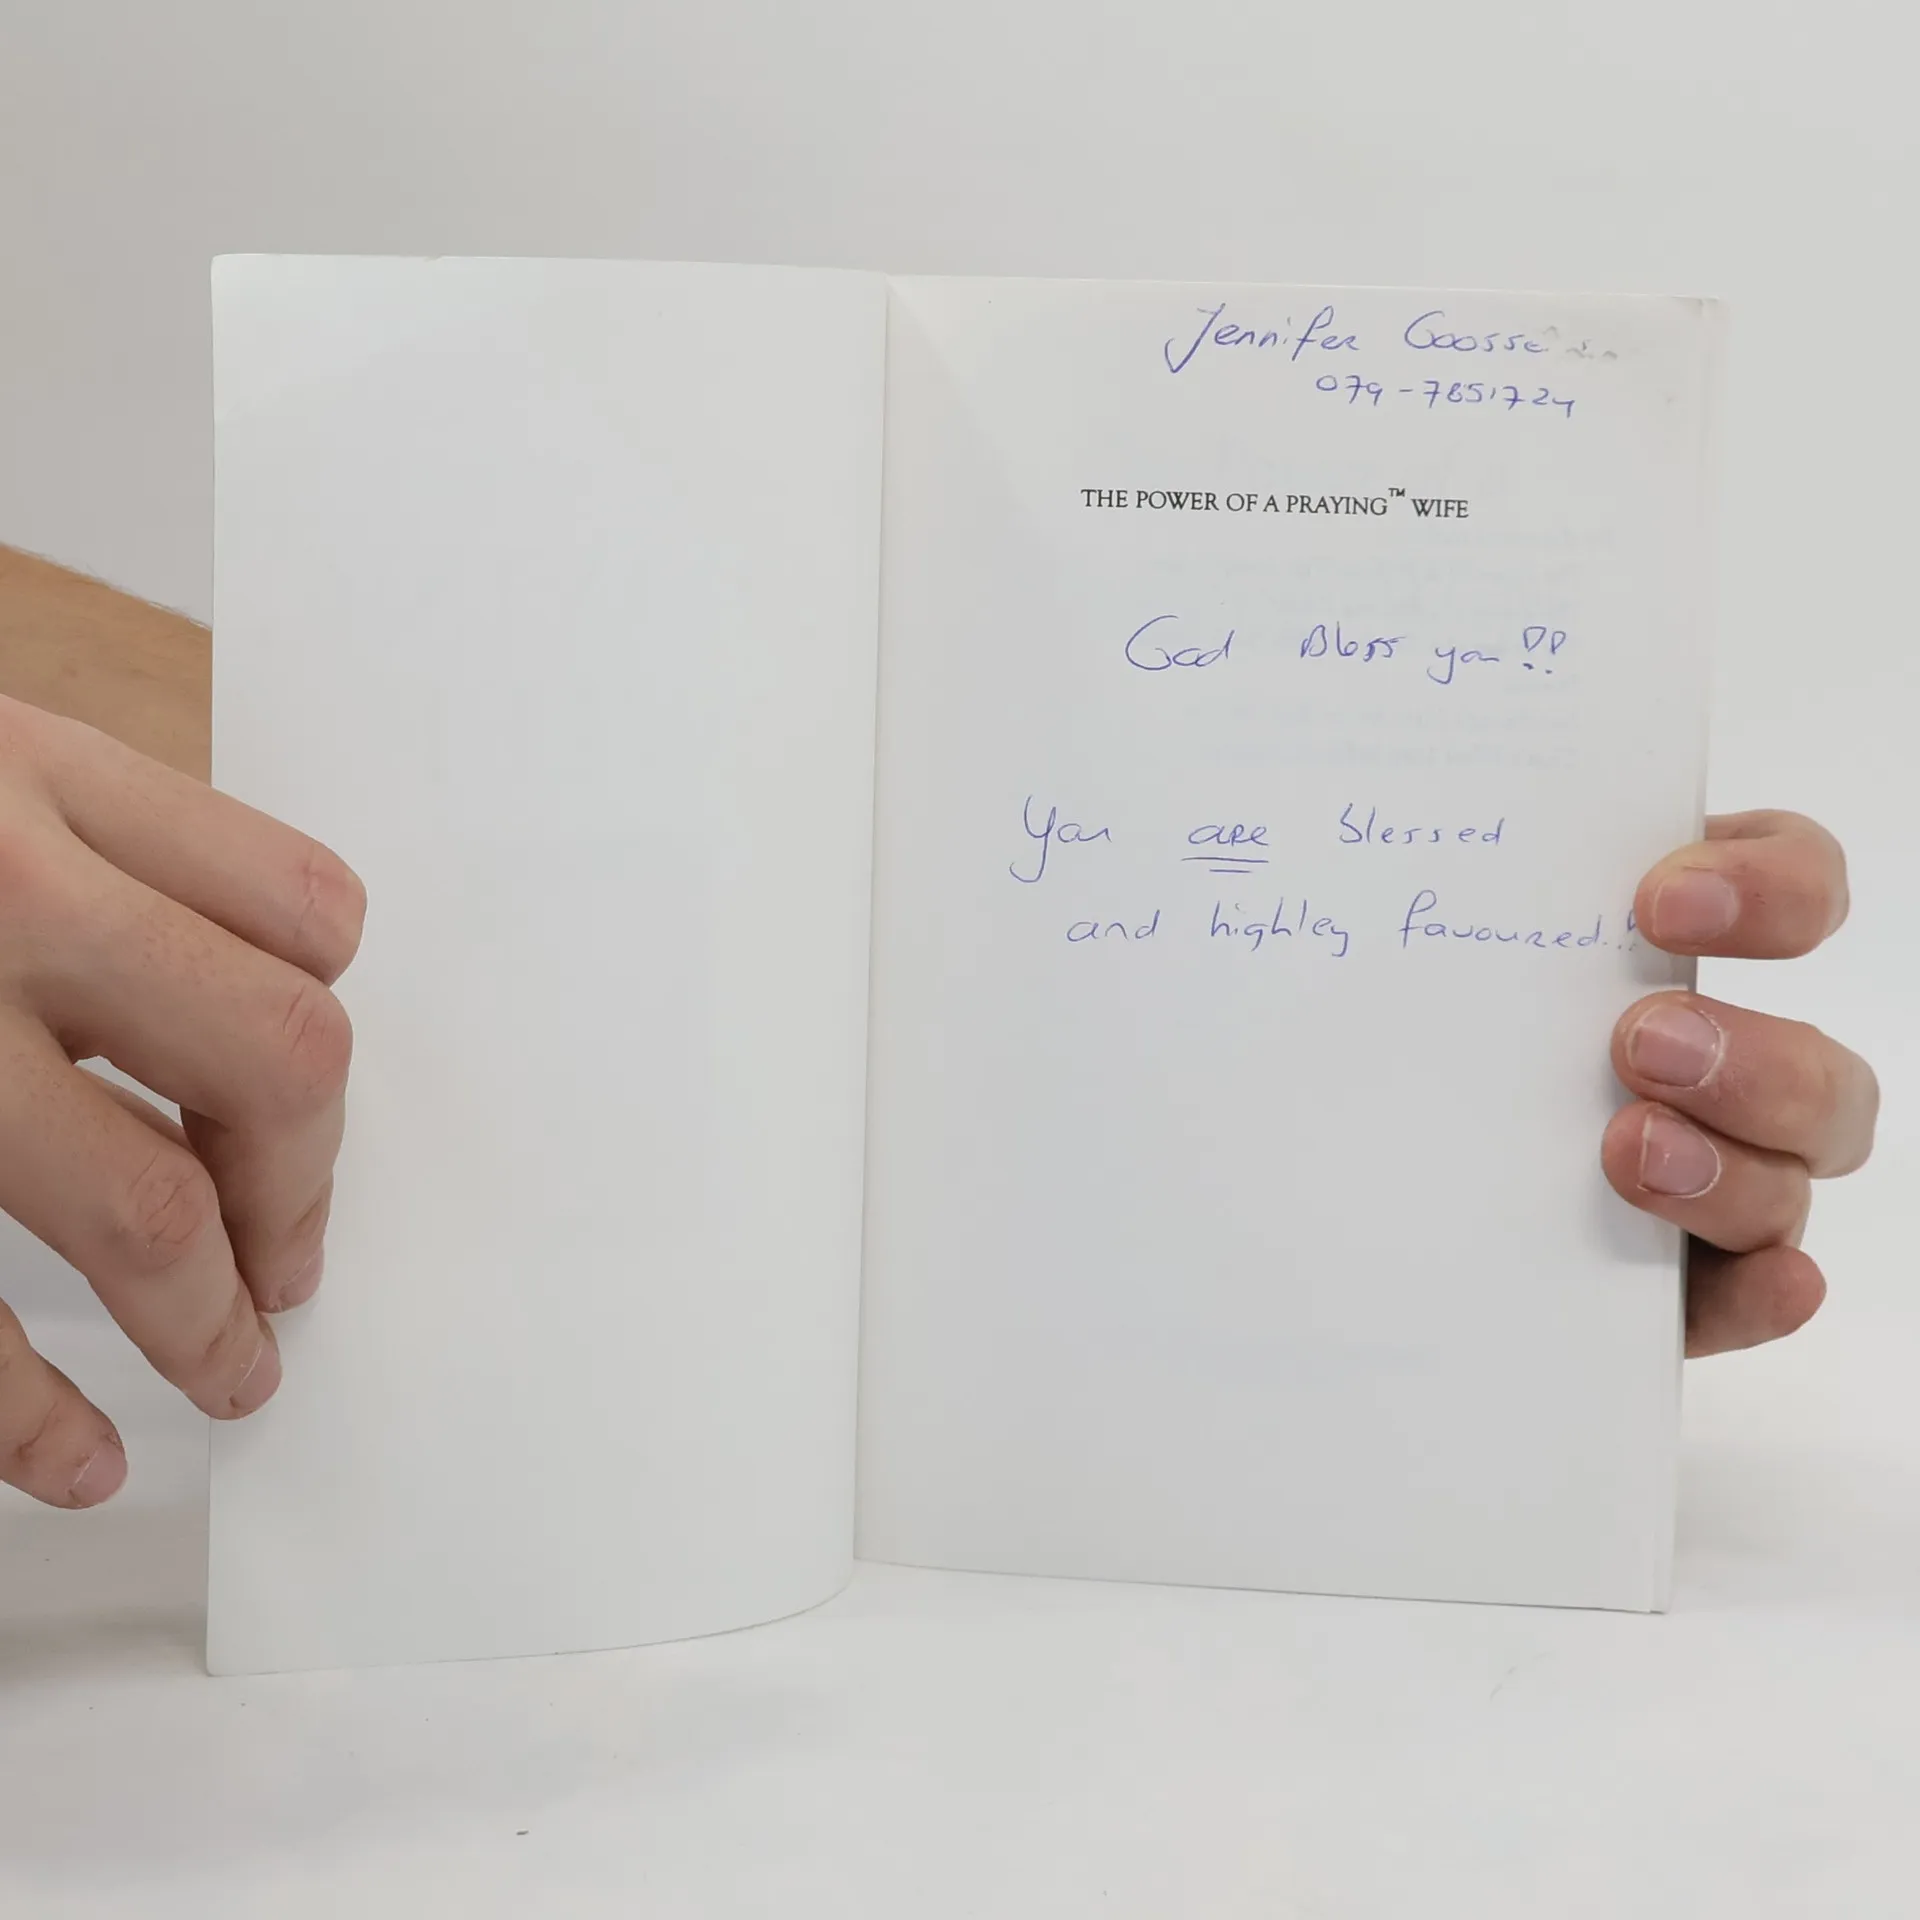 Jennifer
079-7851724
THE POWER OF A PRAYING™ WIFE
God Bless you!!
You are blessed
and highley favoured.!